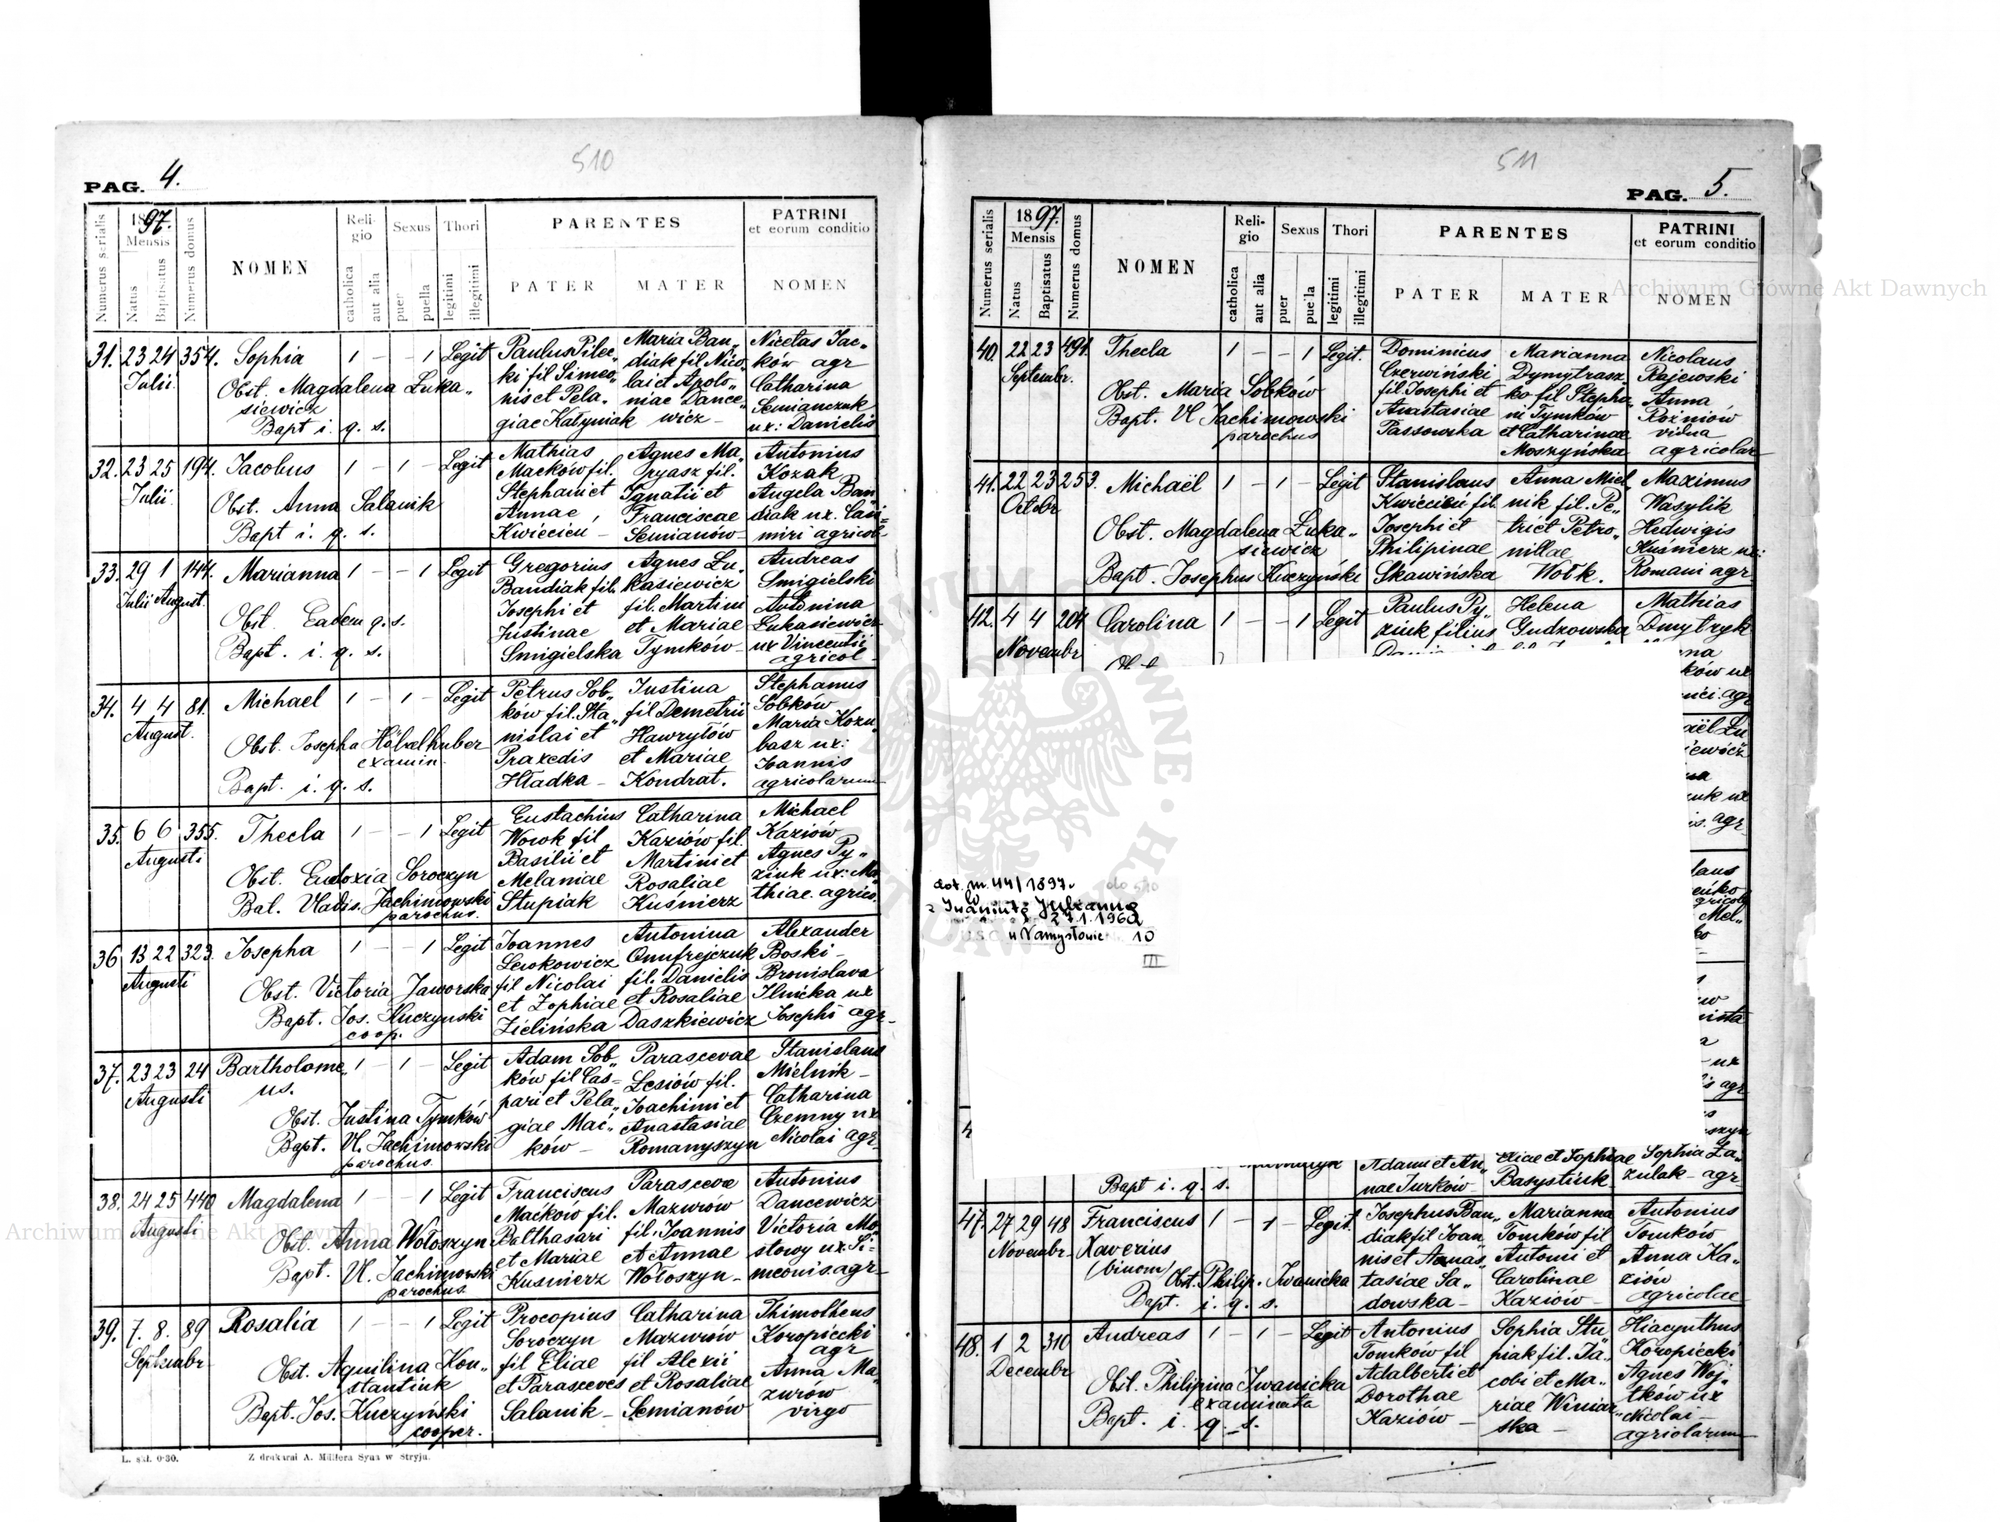 510
PAG. 4.
Numerus serialis
1897.
Mensis
Natus
Baptisatus
Numerus domus
NOMEN
Religio
catholica
aut alia
Sexus
puer
puella
Thori
legitimi
illegitimi
PARENTES
PATER
MATER
PATRINI
et eorum conditio
NOMEN
31. 23 24 354. Sophia 1 – – 1 Legit
Iulii
Obst. Magdalena Łuka„
siewicz
Bapt i. q. s.
Paulus Pilec„
ki fil Simeo„
nis et Pela„
giae Katyniak
Maria Ban„
diak fil Nico„
lai et Apolo„
niae Dance„
wicz –
Nicetas Iac„
ków agr
Catharina
Semianczuk
ux: Danielis
32. 23 25 194. Iacobus 1 – 1 – Legit
Iulii
Obst. Anna Salanik
Bapt i. q. s.
Mathias
Maćków fil.
Stephani et
Annae
Kwiecień –
Agnes Ma„
Ignatii et
Franciscae
Semianów –
Antonius
Kozak
Angela Ban
diak ux. Casi„
miri agricol
33. 29 1 144. Marianna 1 – – 1 Legit
Iulii August.
Obst. Eadem q. s.
Bapt. i. q. s.
Gregorius
Bandiak fil.
Iosephi et
Iustinae
Smigielska
Agnes Łu„
kasiewicz
fil. Martini
et Mariae
Tymków –
Andreas
Smigielski
Antonina
Łukasiewicz
ux Vincentii
agricol –
34. 4 4 81. Michael 1 – 1 – Legit
August.
Obst. Iosepha Hölzelhuber
examin.
Bapt. i. q. s.
Petrus Sob„
ków fil. Sta„
nislai et
Praxedis
Hładka –
Iustina
fil Demetrii
Hawryłów
et Mariae
Kondrat.
Stephanus
Sobków
Maria Kozu„
basz ux:
Ioannis
agricolarum
35. 6 6 355. Thecla 1 – – 1 Legit
Augusti
Obst. Eudoxia Soroczyn
Bat. Vladis. Jachimowski
parochus.
Eustachius
Wowk fil
Basilii et
Melaniae
Stupiak
Catharina
Kaziów fil.
Martini et
Rosaliae
Kuśnierz
Michael
Kaziów
Agnes Py„
ziuk ux: Ma
thiae. agrico.
36 13 22 323. Iosepha 1 – – 1 Legit
Augusti
Obst. Victoria Jaworska
Bapt. Jos. Kuczynski
coop.
Ioannes
Lewkowicz
fil Nicolai
et Zophiae
Zielińska
Antonina
Onufrejczuk
fil. Danielis
et Rosaliae
Daszkiewicz
Alexander
Boski –
Bronislava
Ilnicka ux
Iosephi agr–
37. 23 23 24 Bartholome„ 1 – 1 – Legit
Augusti
us.
Obst. Justina Tymków
Bapt. Vl. Jachimowski
parochus.
Adam Sob„
ków fil Cas„
pari et Pela„
giae Mać„
ków –
Parascevae
Lesiów fil.
Ioachimi et
Anastasiae
Romanyszyn
Stanislaus
Mielnik –
Catharina
Czemny ux
Nicolai agr–
38. 24 25 440 Magdalena 1 – – 1 Legit
Augusti
Obst. Anna Wołoszyn
Bapt. Vl. Jachimowski
parochus.
Franciscus
Maćkow fil.
Balthasari
et Mariae
Kusnierz
Parascevae
Mazurów
fil. Ioannis
et Annae
Wołoszyn –
Antonius
Dancewicz
Victoria Mo
słowy ux. Si„
meonis. agr–
39. 7. 8. 89 Rosalia 1 – – 1 Legit
Septembr
Obst. Aquilina Kon„
stantiuk
Bapt. Jos. Kuczyński
cooper.
Procopius
Soroczyn
fil Eliae
et Parasceves
Salanik –
Catharina
Mazurów
fil Alexii
et Rosaliae
Semianów
Thimotheus
Koropiecki
agr
Anna Ma„
zurów
virgo
L. skł. 0·30.
Z drukarni A. Müllera Syna w Stryju.
511
PAG. 5.
Numerus serialis
1897.
Mensis
Natus
Baptisatus
Numerus domus
NOMEN
Religio
catholica
aut alia
Sexus
puer
puella
Thori
legitimi
illegitimi
PARENTES
PATER
MATER
PATRINI
et eorum conditio
NOMEN
40. 22 23 494. Thecla 1 – – 1 Legit.
Septembr.
Obst. Maria Sobków
Bapt. Vl Jachimowski
parochus
Dominicus
Czerwiński
fil. Iosephi et
Anastasiae
Passowska
Marianna
Dymytrasz„
ko fil Stepha„
ni Tymków
et Catharinae
Moszyńska
Nicolaus
Rajewski
Anna
Rozniów
vidua
agricolar–
41. 22 23 253. Michaël 1 – 1 – Legit
Octobr
Obst. Magdalena Łuka„
siewicz
Bapt. Josephus Kuczyński
Stanislaus
Kwiecień fil.
Iosephi et
Philipinae
Skawińska
Anna Miel„
nik fil. Pe„
tri et Petro„
nillae
Wołk.
Maximus
Wasylik
Hedwigis
Kuśnierz ux:
Romani agr–
42. 4 4 204 Carolina 1 – – 1 Legit
Novembr
Paulus Py„
ziuk filius
Helena
Gudzowska
Mathias
Dmytryk
ków ux
agr
aël Łu
iewicz
agr
Mel„
agr
dot. nr. 44/1897.
do 510
Iwanutę Julianna
27.1.1960
U.S.C. w Namysłowie 10
III
Bapt i. q. s.
Adami et An„
nae Jurków –
Eliae et Sophiae
Basystiuk
Sophia Ła„
zulak – agr
47. 27 29 48 Franciscus 1 – 1 – Legit.
Novembr–
Xaverius
(binom)
Obst. Philip. Iwanicka
Bapt. i. q. s.
Iosephus Ban„
diak fil Ioan„
nis et Anas„
tasiae Sa„
dowska –
Marianna
Tomków fil
Antonii et
Carolinae
Kaziów –
Antonius
Tomków
Anna Ka„
ziów
agricolae
48. 1 2 310 Andreas 1 – 1 – Legit
Decembr
Obst. Philipina Iwanicka
examinata
Bapt. i. q. s.
Antonius
Tomkow fil
Adalberti et
Dorothae
Kaziów –
Sophia Stu„
piak fil. Ia„
cobi et Ma„
riae Winiar„
ska –
Hiacynthus
Koropiecki
Agnes Woj„
tków ux
Nicolai –
agricolarum
Archiwum Główne Akt Dawnych
Archiwum Główne Akt Dawnych